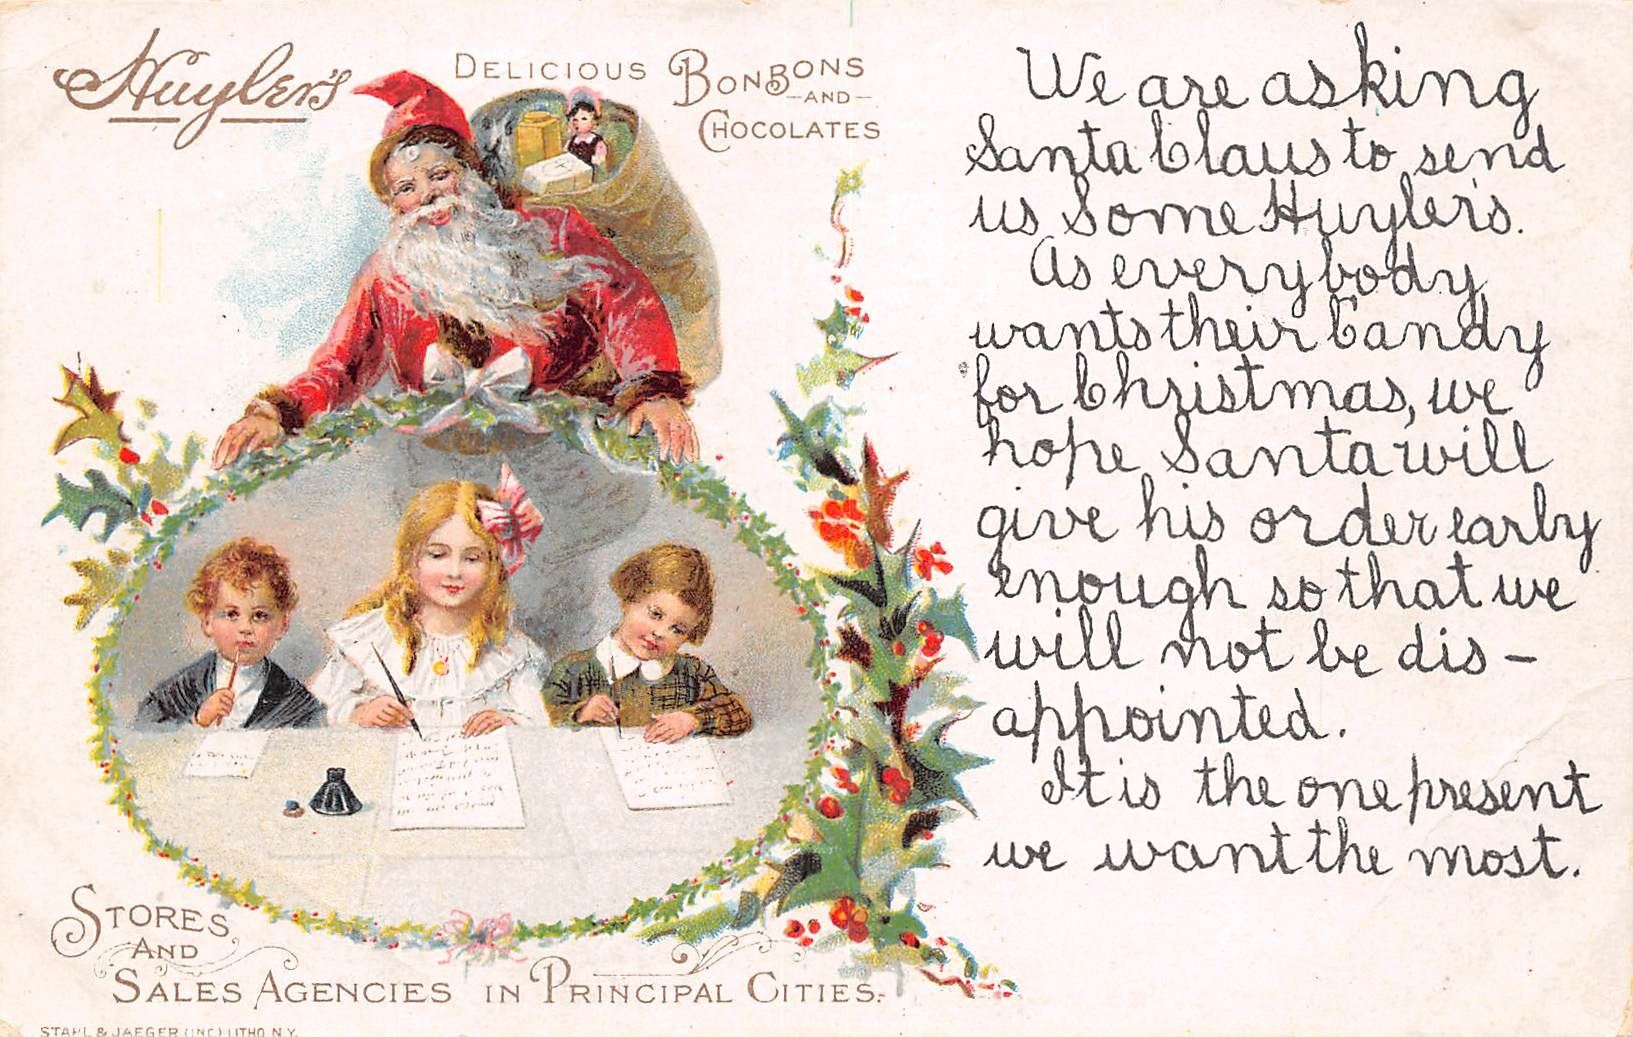 Huyler's
DELICIOUS BONBONS
—AND—
CHOCOLATES
We are asking
Santa Claus to send
us Some Huyler's.
As everybody
wants their Candy
for Christmas, we
hope Santa will
give his order early
enough so that we
will not be dis-
appointed.
It is the one present
we want the most.
STORES
AND
SALES AGENCIES IN PRINCIPAL CITIES.
STAHL & JAEGER (INC) LITHO N.Y.